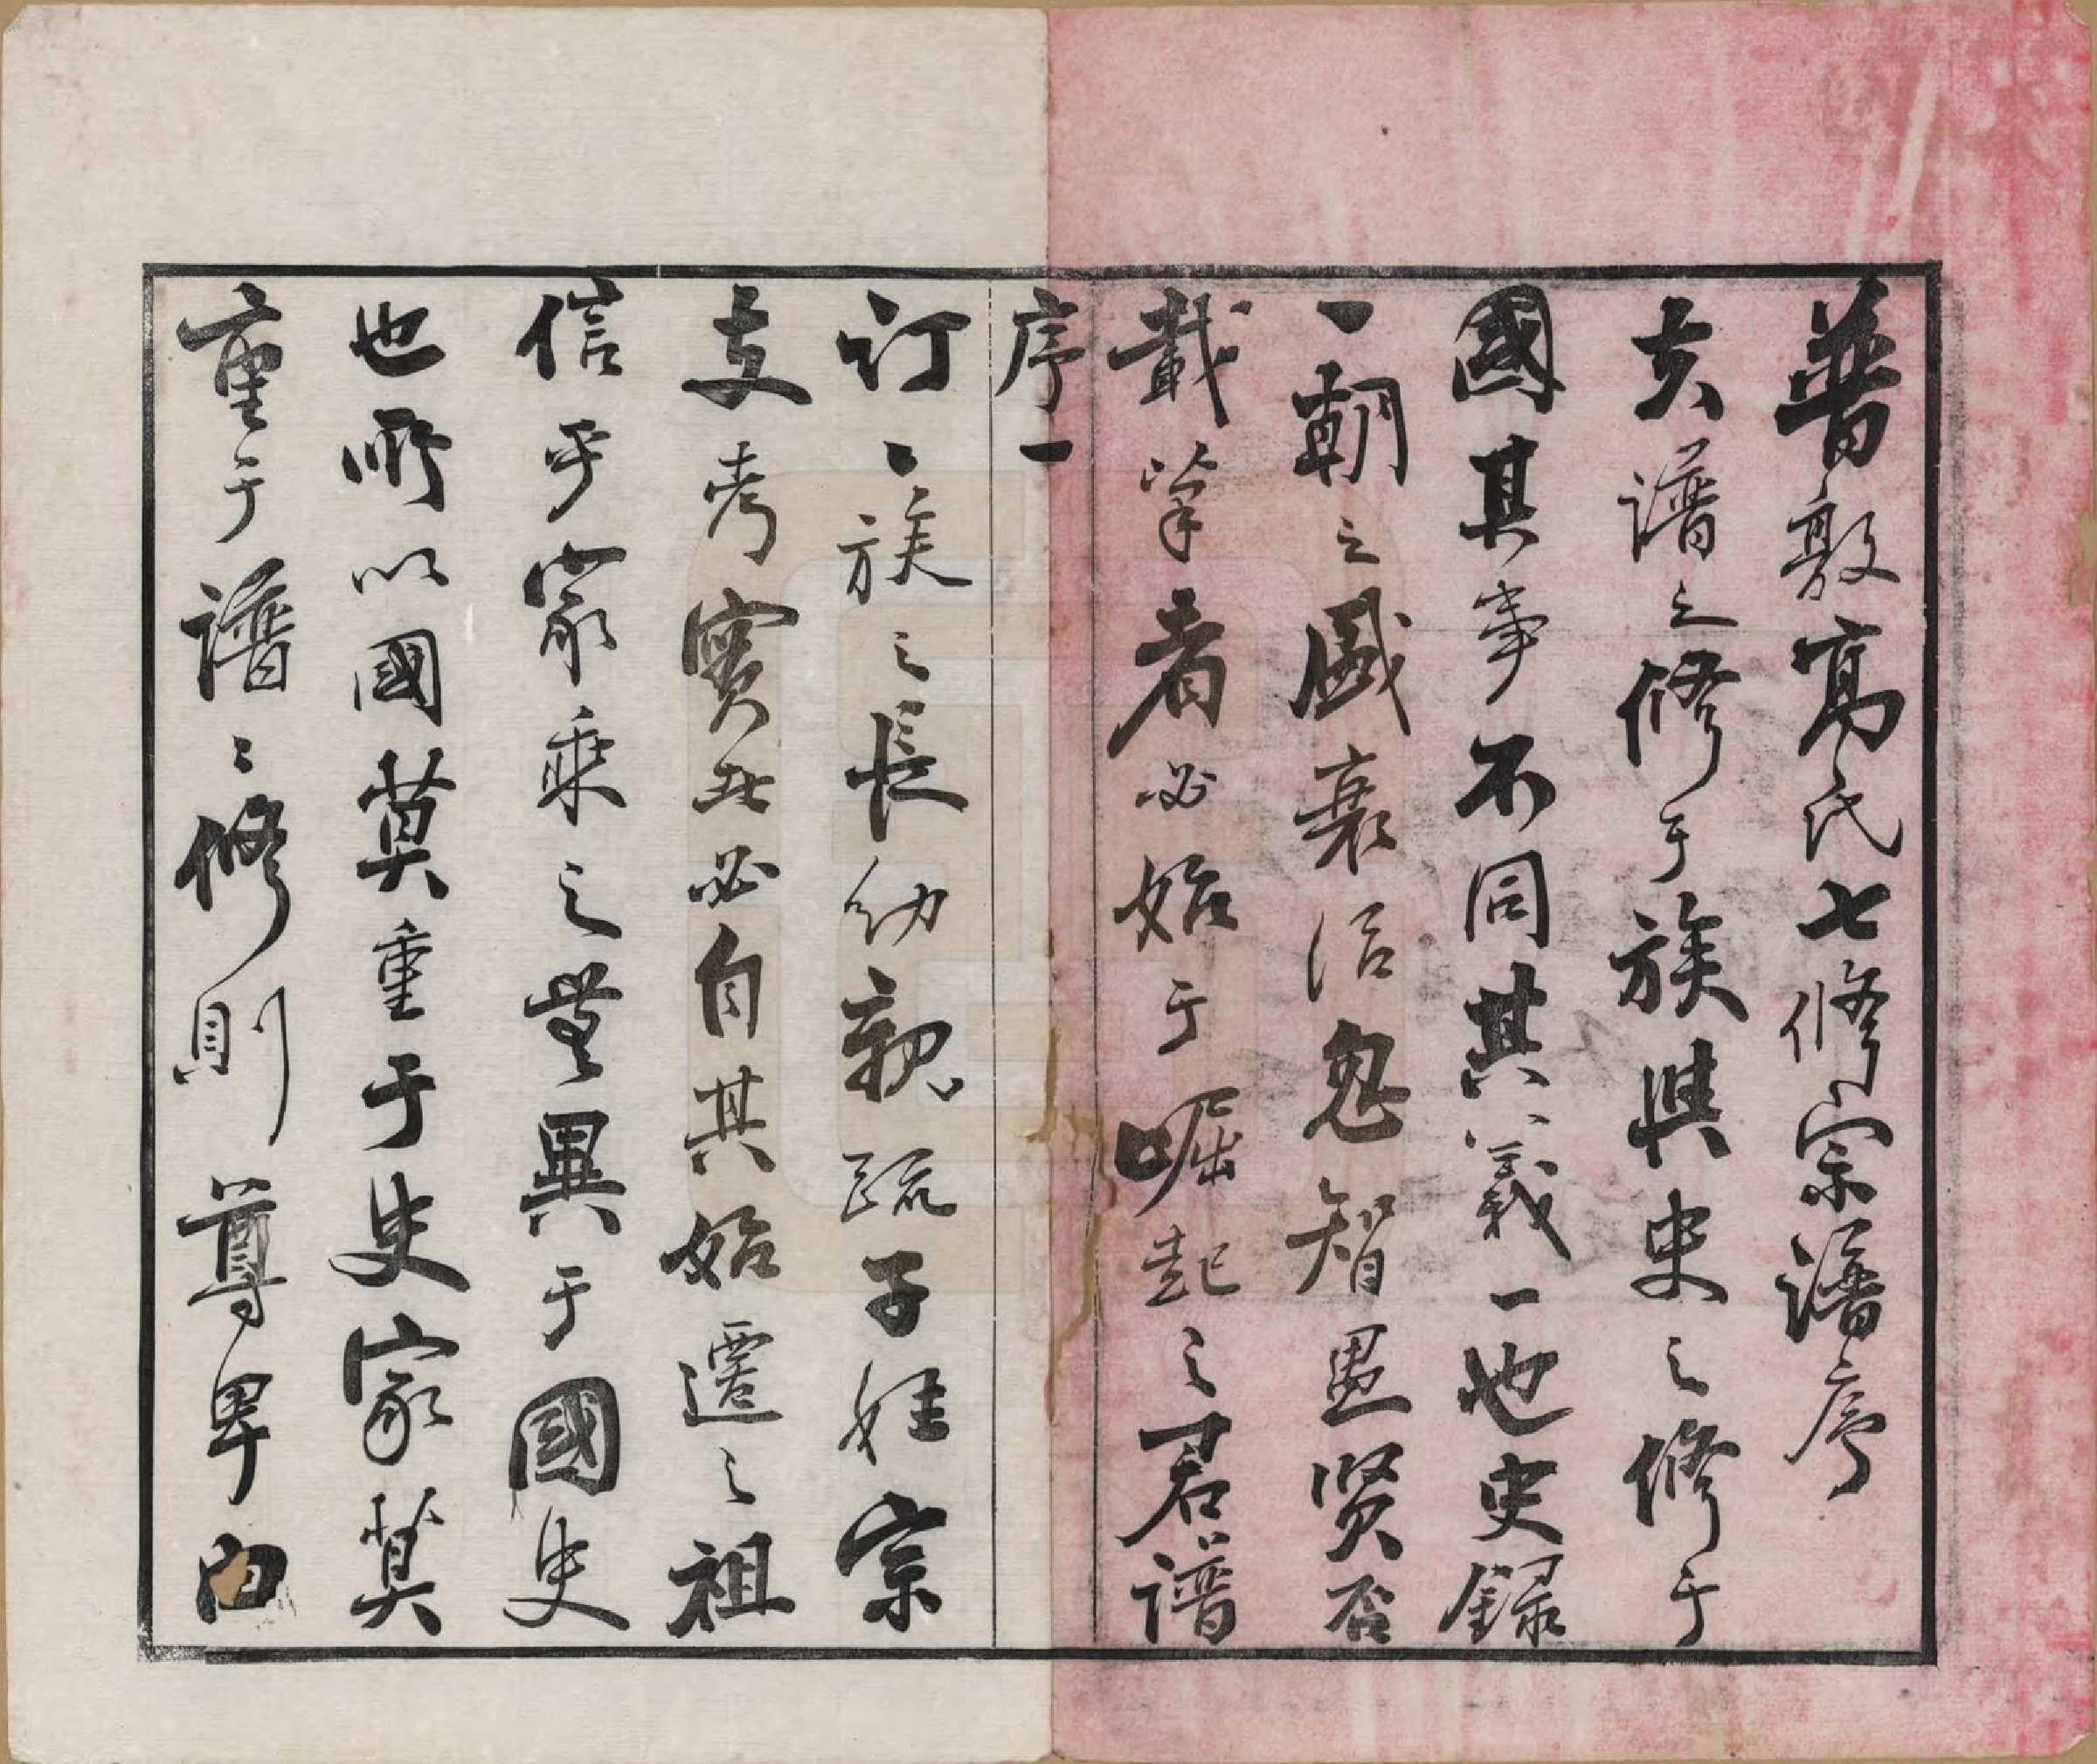 普敦髙氏七修宗譜序
夫譜之修于族與史之修于
國其事不同其義一也史録
一朝之盛衰治忽智愚賢否
載筆者必始于崛起之君譜
序一
訂一族之長幼親疏子姓宗
支考實者必自其始遷之祖
信乎家乘之無異于國史
也所以國莫重于史家莫
重于譜譜修則尊卑由